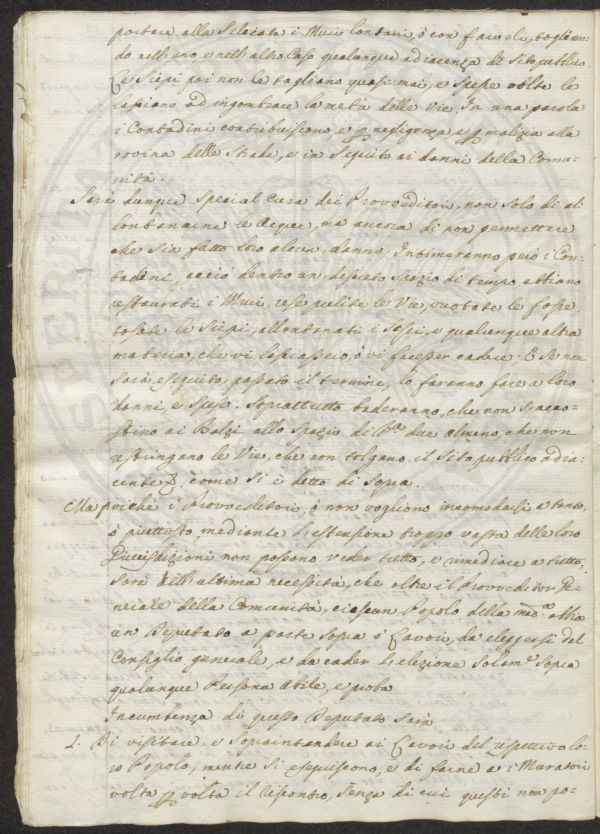 portare alla Selciata i Muri lontani, o con farceli, togliendo
do nell'uno e nell'altro Caso qualunque adiacenza di Sito pubblico.
Le Siepi poi non le tagliano quasi mai, e spesse volte le
lasciano ad ingombrare la metà delle Vie. In una parola
i Contadini contribuiscono, e p negligenza, e p malizia alla
rovina delle Strade, e in Seguito ai danni della Comu-
nità.
Sarà dunque Spezial Cura dei Provveditori, non Solo di al-
lontanarne le Acque, ma ancora di non permettere
che sia fatto loro alcun danno. Intimeranno però i Con-
tadini, acciò dentro un discreto spazio di tempo abbiano
restaurati i Muri, rese pulite le Vie, vuotate le fosse,
tosate le Siepi, allontanati i Sassi, e qualunque altra
materia, che vi lasciassero, o vi facesser cadere. E Se non
Sarà eseguito, passato il termine, lo faranno fare a loro
danni, e spese. Soprattutto baderanno, che non S'acco-
stino ai Balzi allo Spazio di B.a due almeno, che non
restringano le Vie, che non tolgano il Sito pubblico adia-
cente, come Si è detto di Sopra.
Ma poichè i Provveditori, o non vogliono incomodarsi a tanto,
o piuttosto, mediante l'estensione troppo vasta delle loro
Giurisdizioni non possono veder tutto, e rimediare a tutto,
Sarà dell'ultima necessità, che oltre il Provveditor Ge-
nerale della Comunità, ciascun Popolo della med.a abbia
un Deputato a parte Sopra i Lavori, da eleggersi dal
Consiglio generale, e da cader l'elezione Solam.e Sopra
qualunque Persona abile, e proba
Incumbenza di questo Deputato Sarà
1. Di visitare e Soprintendere ai Lavori del respettivo lo-
ro Popolo, mentre Si eseguiscono, e di farne a i Muratori
volta p volta il riscontro, Senza di cui questi non po-